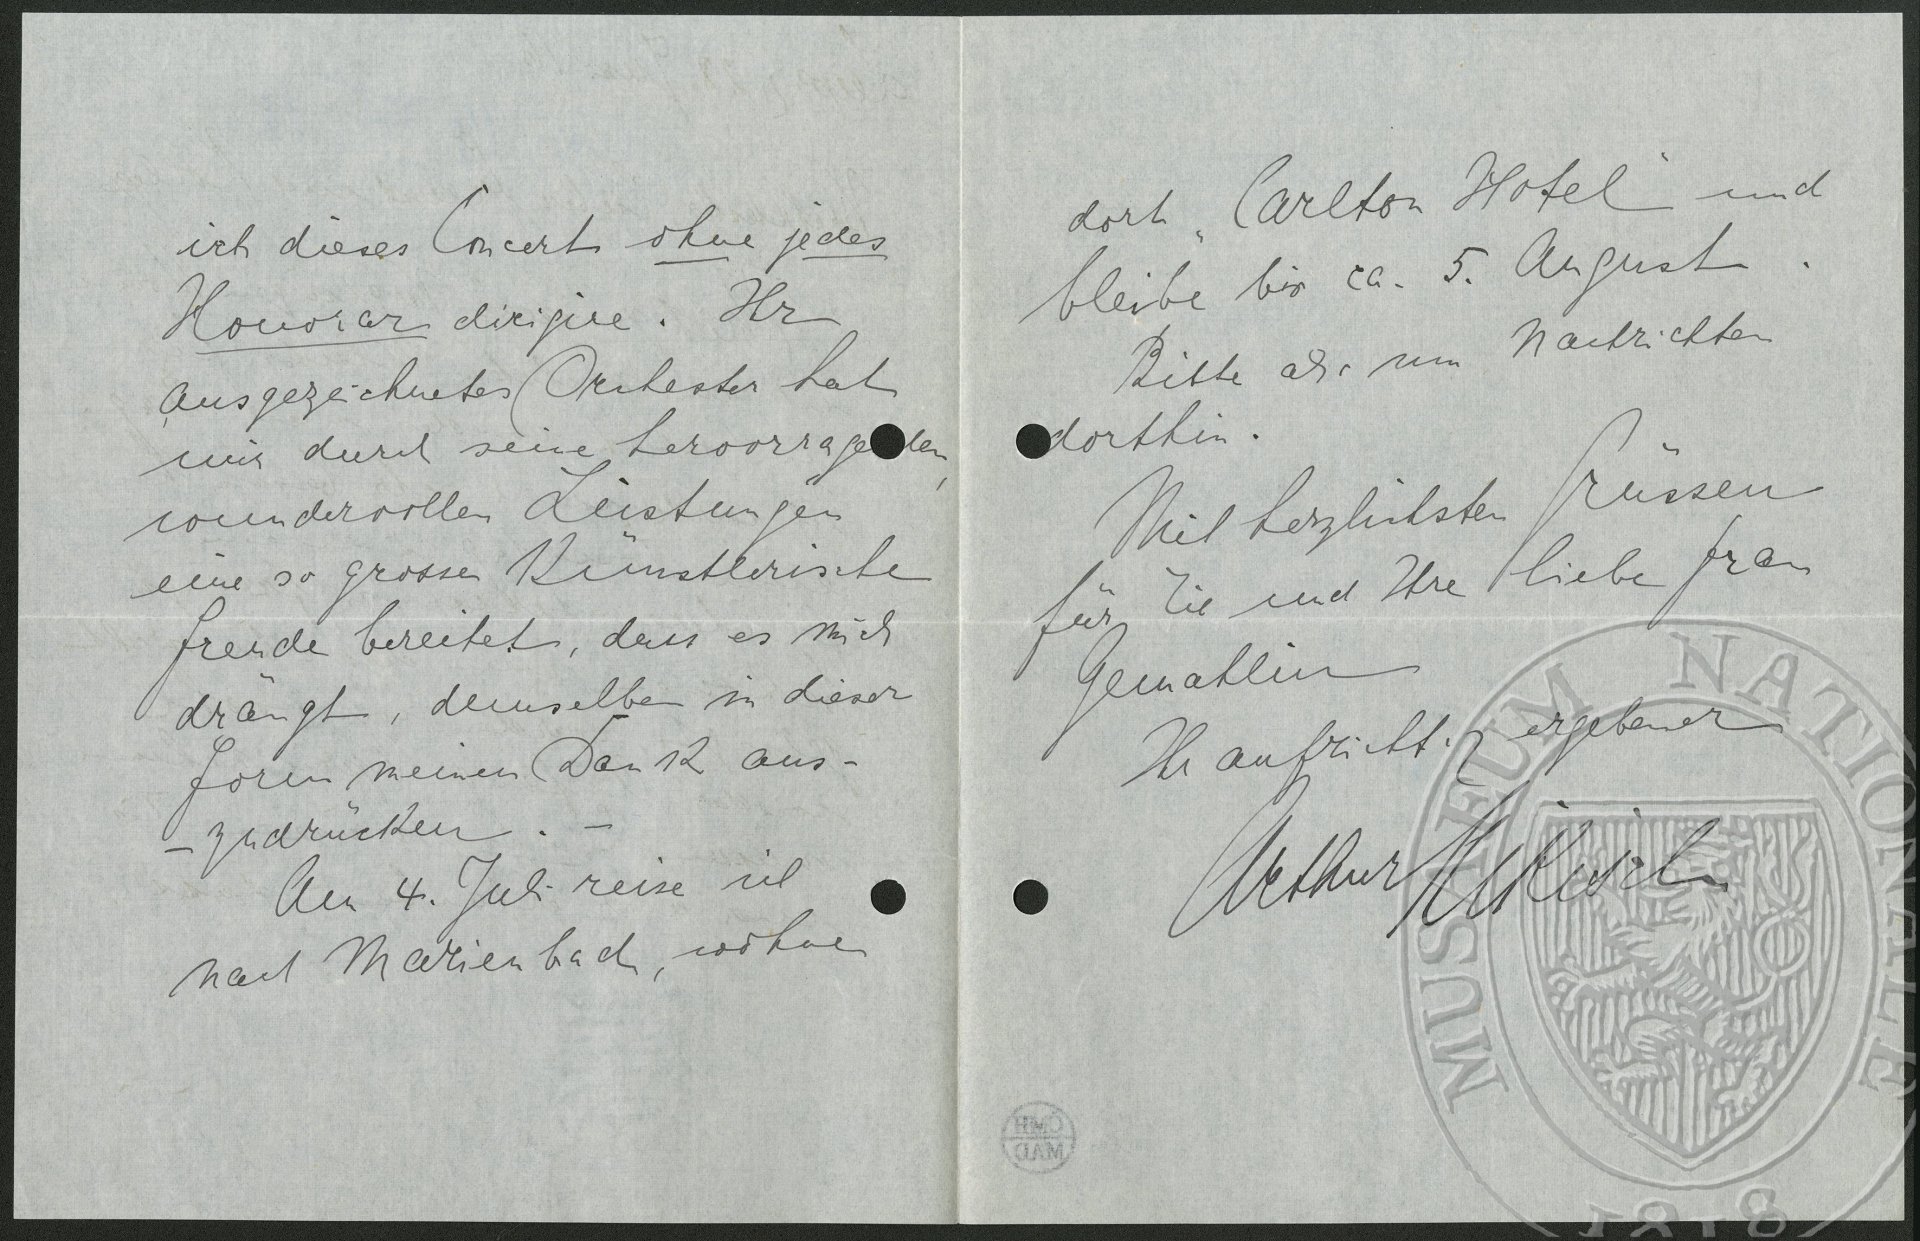 ich dieses Concert ohne jedes
Honorar dirigire. Ihr
ausgezeichnetes Orchester hat
mir durch seine hervorragenden,
wundervollen Leistungen
eine so grosse Künstlerische
Freude bereitet, dass es mich
drängt, demselben in dieser
Form meinen Dank aus-
-zudrücken. -
Am 4. Juli reise ich
nach Marienbad, wohne
dort „Carlton Hotel“ und
bleibe bis ca. 5. August.
Bitte also um Nachrichten
dorthin.
Mit herzlichsten Grüssen
für Sie und Ihre liebe Frau
Gemahlin
Ihr aufrichtig ergebener
Arthur Nikisch
MUSAEUM NATIONALE
1818
ČMH
MAD